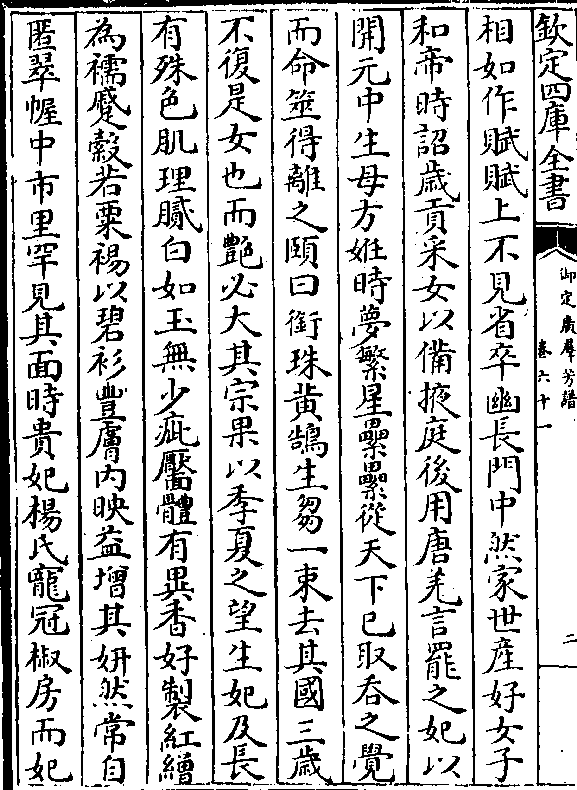 欽定四庫全書
御定廣羣芳譜
卷六十一
二
相如作賦賦上不見省卒幽長門中然家世産好女子
和帝時詔歲貢采女以備掖庭後用唐羌言罷之妃以
開元中生母方娠時夢繁星纍纍從天下已取呑之覺
而命筮得離之頤曰銜珠黄鵠生芻一束去其國三歲
不復是女也而艷必大其宗果以季夏之望生妃及長
有殊色肌理膩白如玉無少疵黶體有異香好製紅繒
為襦蹙縠若粟裼以碧衫豐膚内映益增其妍然常自
匿翠幄中市里罕見其面時貴妃楊氏寵冠椒房而妃